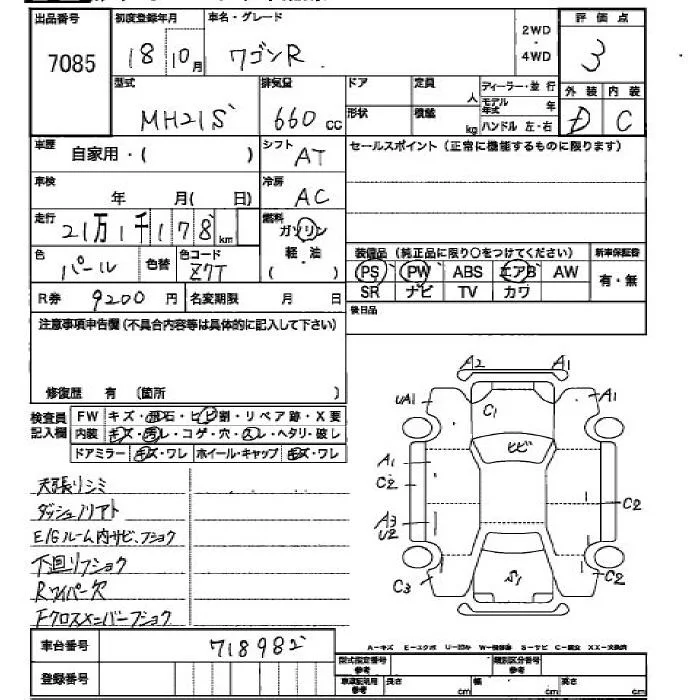 出品番号 初度登録年月 車名・グレード 評価点
7085 18 10月 ワゴンR 2WD・4WD 3
型式 排気量 ドア 定員 人 ディーラー・並行 外装 内装
MH21S 660cc 形状 積載 kg モデル年式 年 ハンドル 左・右 D C
車歴 自家用・( ) シフト AT セールスポイント(正常に機能するものに限ります)
車検 年 月( 日) 冷房 AC
走行 21万1千178km 燃料 ガソリン 軽・油 ( ・ )
装備品(純正品に限り○をつけてください) 新車保証書
色 パール 色替 色コード Z7T PS PW ABS エアB AW 有・無
R券 9200円 名変期限 月 日 SR ナビ TV カワ
注意事項申告欄(不具合内容等は具体的に記入して下さい) 後日品
修復歴 有 〔箇所 〕
検査員記入欄 FW キズ・飛石・ヒビ割・リペア跡・X要
内装 キズ・汚レ・コゲ・穴・スレ・ヘタリ・破レ
ドアミラー キズ・ワレ ホイール・キャップ キズ・ワレ
天張リシミ
ダッシュノリアト
E/Gルーム内サビ、フショク
下廻リフショク
Rワイパー欠
Fクロスメンバーフショク
A2 A1
UA1 C1 A1
ヒビ
A1
C2
C2
A3
U2
C3 S1 C2
A-キズ E-エクボ U-凹み W-補修跡 S-サビ C-腐食 XX-交換済
車台番号 718982
登録番号
型式指定番号 参考 類別区分番号 参考
車庫証明用 参考 長さ cm 幅 cm 高さ cm